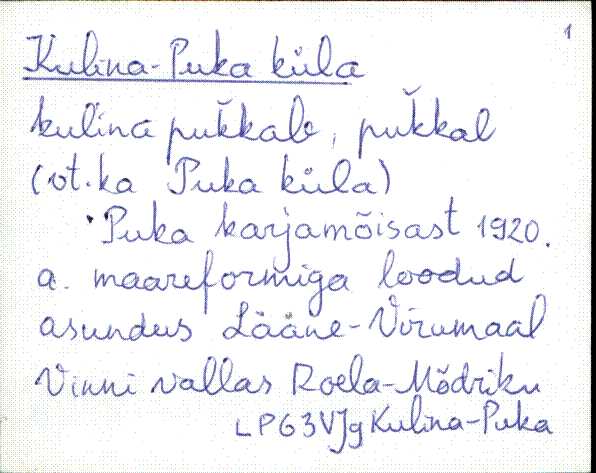 1
Kulina-Puka küla
kulinà pukkale, pukkal
(vt. ka Puka küla)
Puka karjamõisast 1920.
a. maareformiga loodud
asundus Lääne-Virumaal
Vinni vallas Roela-Mõdriku
LPG3VJgKulina-Puka